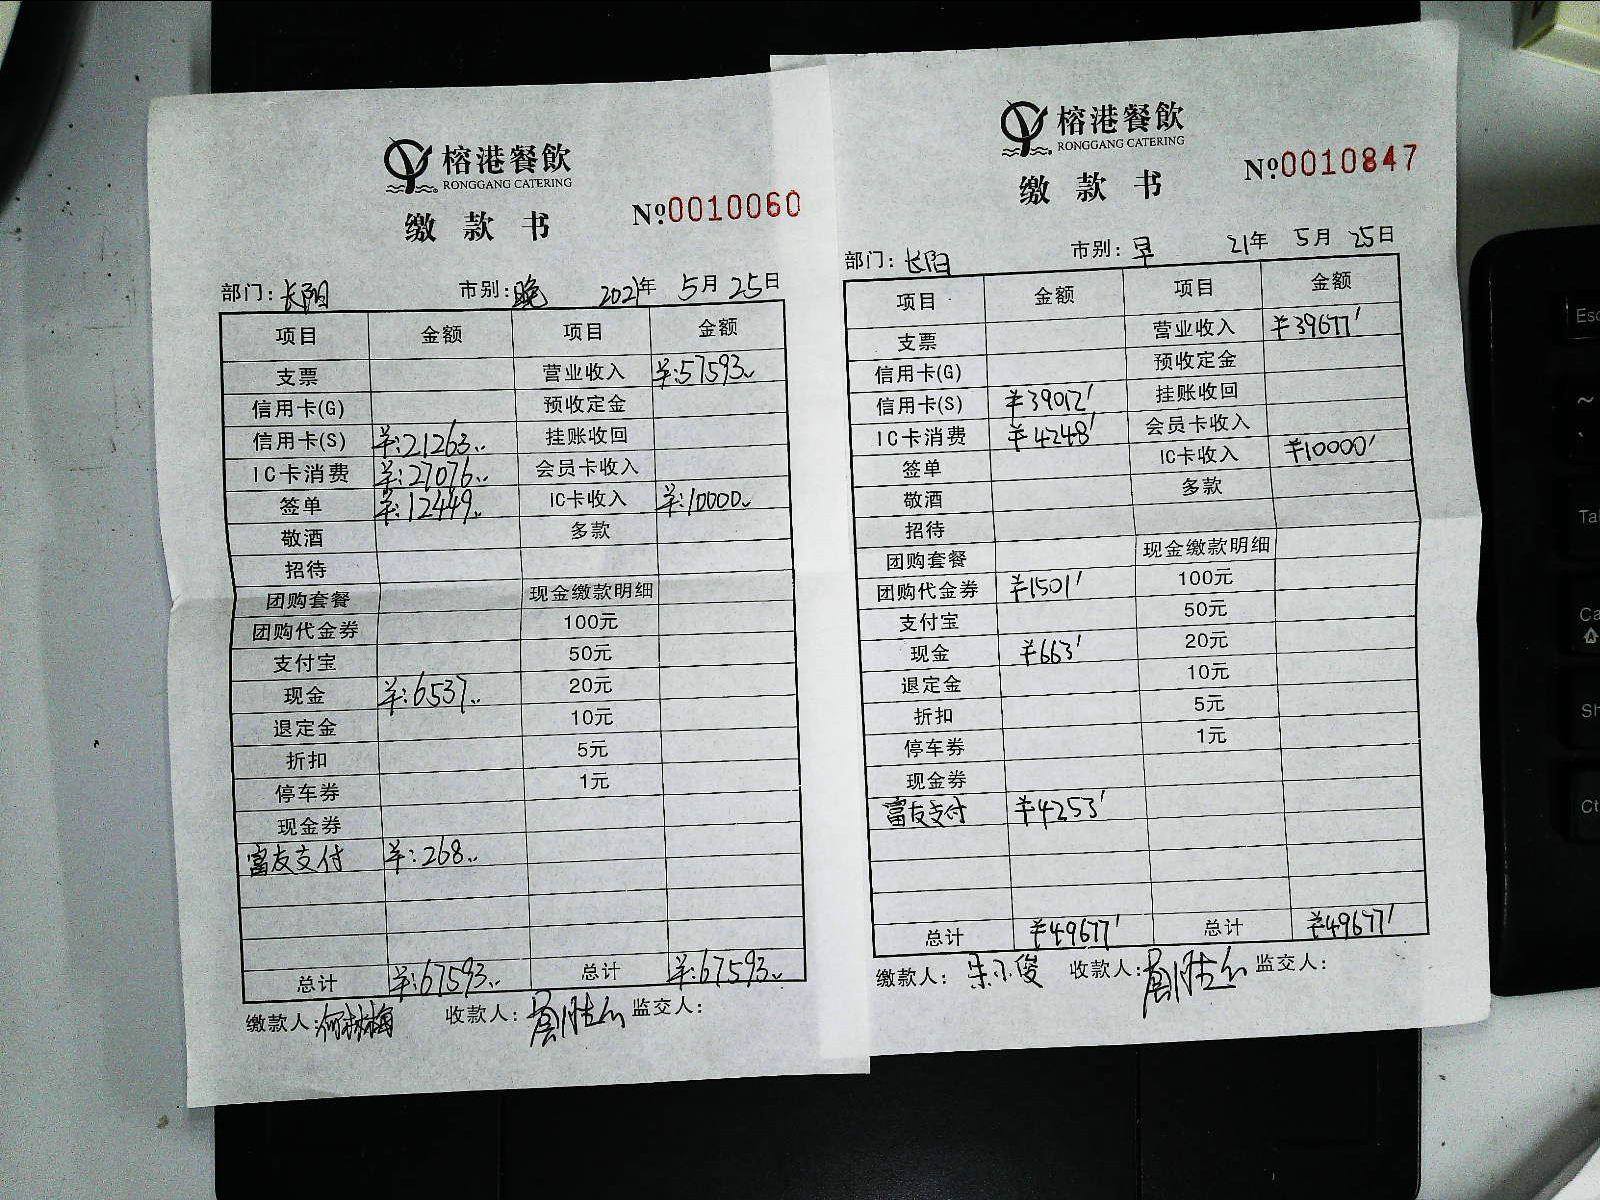 榕港餐飲
RONGGANG CATERING
缴款书
№0010060
部门:长阳 市别:晚 2021年 5月25日
项目 金额 项目 金额
支票 营业收入 ¥:57593
信用卡(G) 预收定金
信用卡(S) ¥:21263 挂账收回
IC卡消费 ¥:27076 会员卡收入
签单 ¥:12449 IC卡收入 ¥:10000
敬酒 多款
招待
团购套餐 现金缴款明细
团购代金券 100元
支付宝 50元
现金 ¥:6537 20元
退定金 10元
折扣 5元
停车券 1元
现金券
富友支付 ¥:268
总计 ¥:67593 总计 ¥:67593
缴款人:何林梅 收款人: 监交人:
榕港餐飲
RONGGANG CATERING
缴款书
№0010847
部门:长阳 市别:早 21年 5月 25日
项目 金额 项目 金额
支票 营业收入 ¥39677
信用卡(G) 预收定金
信用卡(S) ¥39012 挂账收回
IC卡消费 ¥4248 会员卡收入
签单 IC卡收入 ¥10000
敬酒 多款
招待
团购套餐 现金缴款明细
团购代金券 ¥1501 100元
支付宝 50元
现金 ¥663 20元
退定金 10元
折扣 5元
停车券 1元
现金券
富友支付 ¥4253
总计 ¥49677 总计 ¥49677
缴款人: 朱小俊 收款人: 监交人:
Esc
~